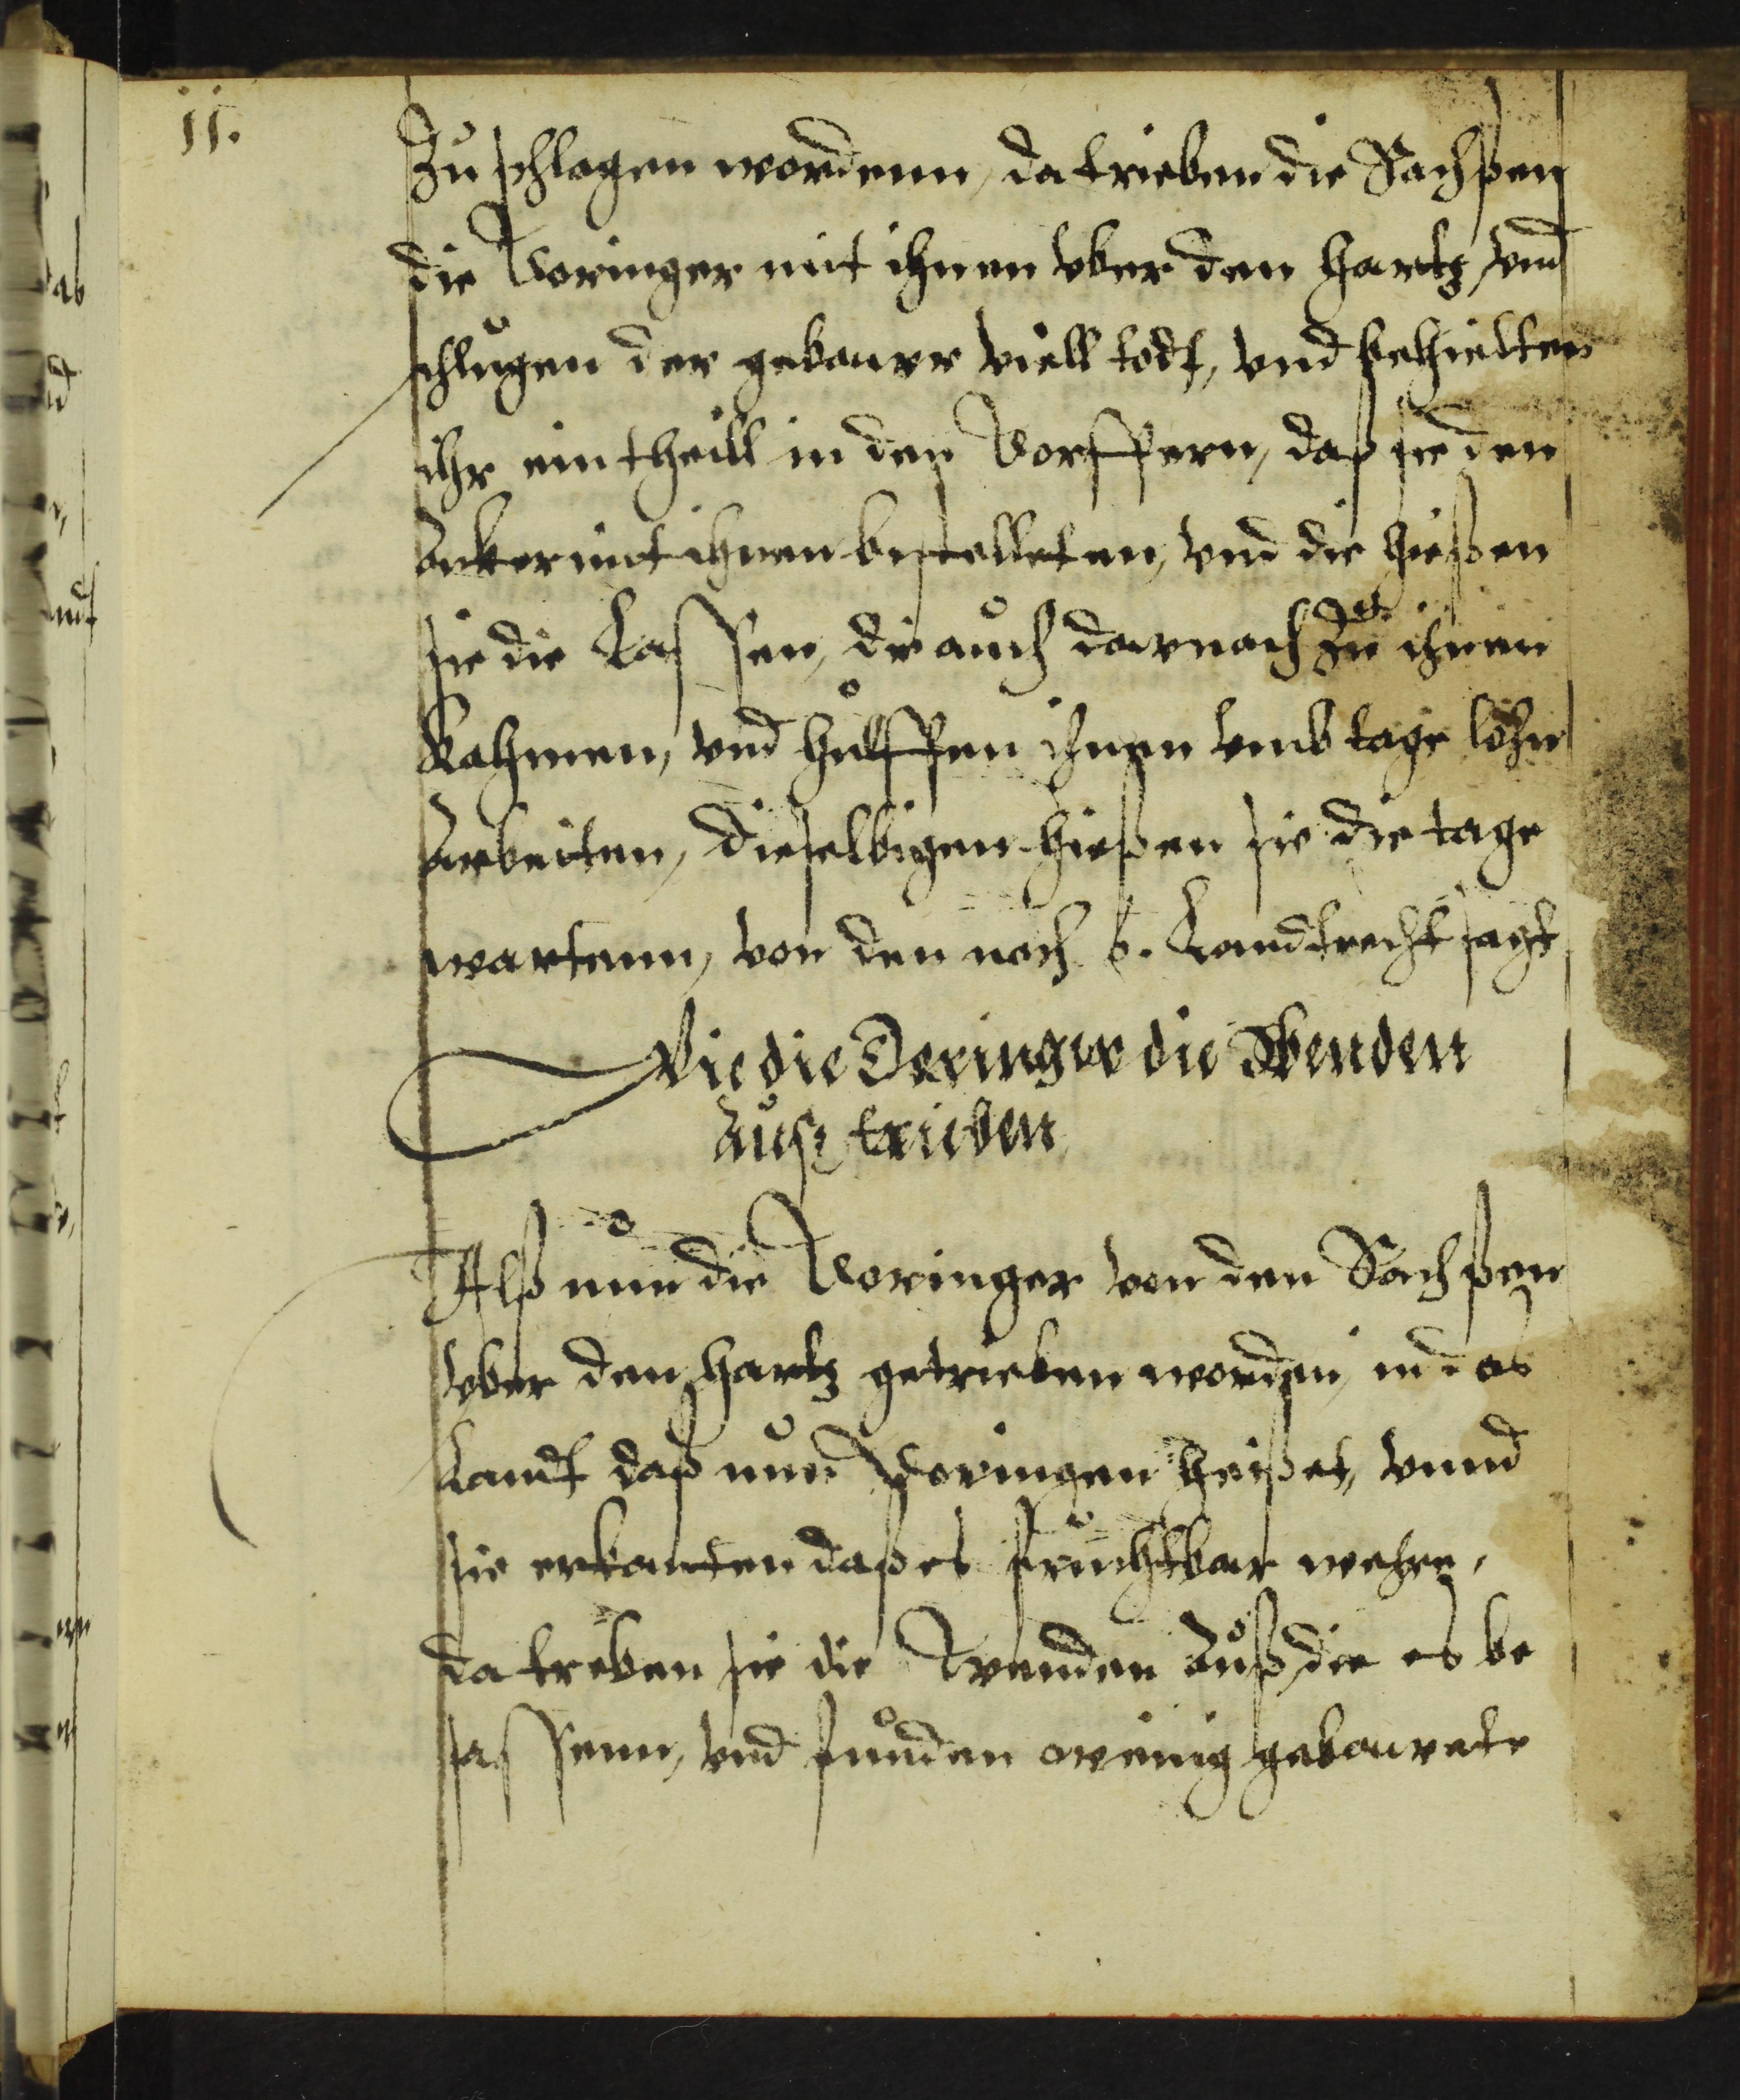 11.
Zu schlagen wordenn, da trieben die Sachßen
die Doringer mit ihnen vber den hartz, vnd
schlugen der gebaurr viell todt, vnd behielten
ihr ein theill in den Dorffern, daß sie den
Acker mit ihnen bestelleten, vnd die hießen
sie die Lassen, die auch darnach zu ihnen
kahmen, vnd hulffen ihnen vmb tage lohn
Arbeiten, dieselbigen hießen sie die tage
wartenn, von den noch b. Landtrecht sagt
Wie die Doringer die Wenden
auß trieben
Alß nun die Doringer von den Sachßen
vber den hartz getrieben worden, in das
Landt daß nun Doringen heißet, vnnd
sie erkanten daß es fruchtbar wehre,
da treben sie die Wenden auß, die es be
sassenn, vnd funden wenig gebaurete